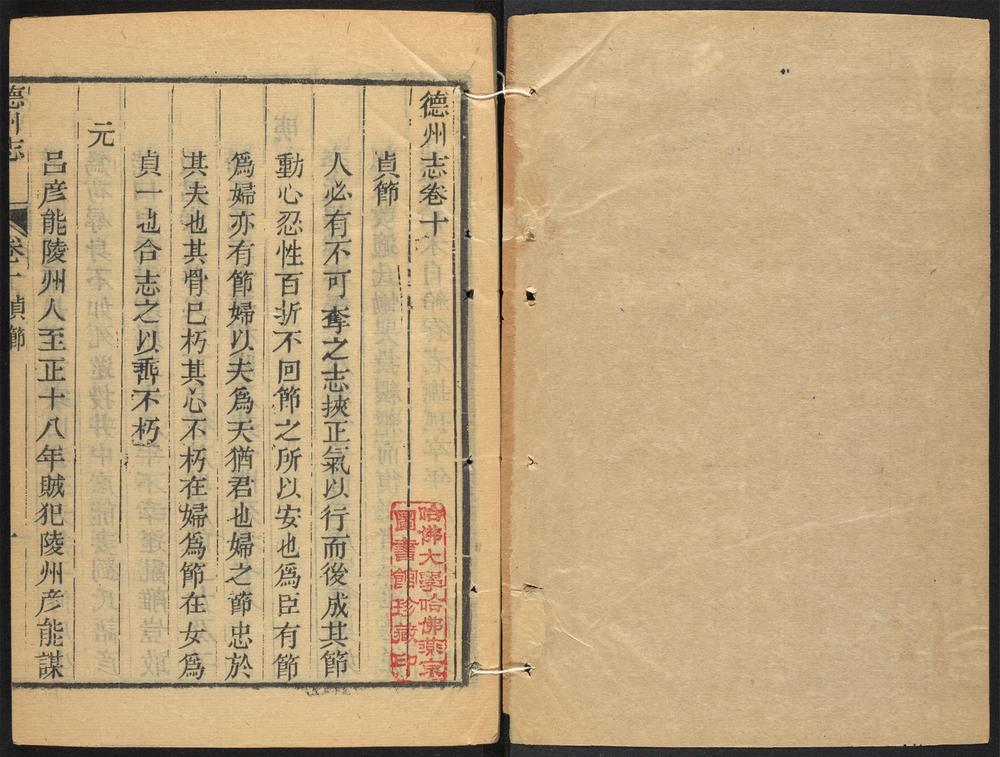 德州志卷十
貞節
人必有不可奪之志挾正氣以行而後成其節
動心忍性百折不回節之所以安也爲臣有節
爲婦亦有節婦以夫爲天猶君也婦之節忠於
其夫也其骨已朽其心不朽在婦爲節在女爲
貞一也合志之以垂不朽
元
呂彦能陵州人至正十八年賊犯陵州彦能謀
德州志
卷十
貞節
哈佛大學哈佛燕京
圖書館珍藏印